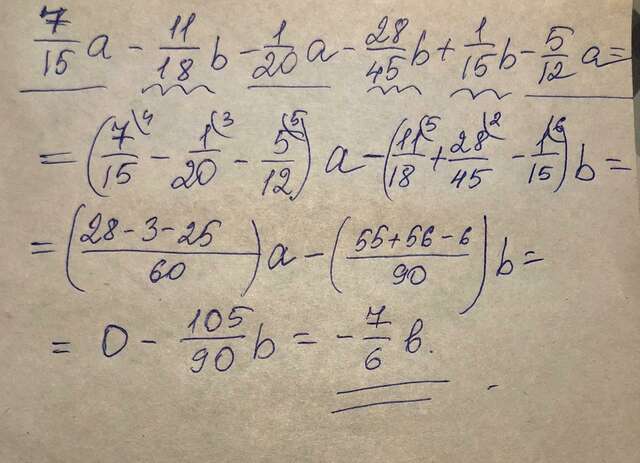 7/15 a - 11/18 b - 1/20 a - 28/45 b + 1/15 b - 5/12 a =
= (7/15 \4 - 1/20 \3 - 5/12 \5) a - (11/18 \5 + 28/45 \2 - 1/15 \6) b =
= ((28 - 3 - 25)/60) a - ((55 + 56 - 6)/90) b =
= 0 - 105/90 b = - 7/6 b.